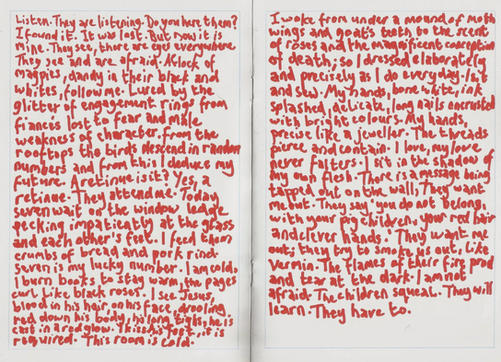 Listen. They are listening. Do you here them?
I found it. It was lost. But now it is
mine. They see, there are eyes everywhere.
They see and are afraid. A flock of
magpies, dandy in their black and
whites, follow me. Lured by the
glitter of engagement rings from
fiancés lost to fear and male
weakness of character, from the
rooftops the birds descend in random
numbers and from this I deduce my
future. A retinue is it? Yes, a
retinue. They attend me. Today
seven wait on the window ledge
pecking impatiently at the glass
and each other's feet. I feed them
crumbs of bread and pork rind.
Seven is my lucky number. I am cold.
I burn books to stay warm, the pages
curl like black roses. I see Jesus,
blood in his hair, on his face, drooling
red down his body, his long thighs, he is
cast in a red glow. This is his foot, it is
required. This room is cold.
I woke from under a mound of moth
wings and goat's teeth to the scent
of roses and the magnificent conception
of death, so I dressed elaborately
and precisely as I do everyday. I sit
and sew. My hands, bone white, ink
splashed, delicate, long nails encrusted
with bright colours. My hands,
precise like a jeweller. The threads
pierce and contain. I love, my love
never falters. I sit in the shadow of
my own flesh. There is a message being
tapped out on the wall, They want
me out. They say 'you do not belong,
with your pig children, your red hair
and clever hands.' They want me
out, they try to smoke us out, like
vermin. The flames of their fire prod
and tear at the dark. I am not
afraid. The children squeal. They will
learn. They have to.